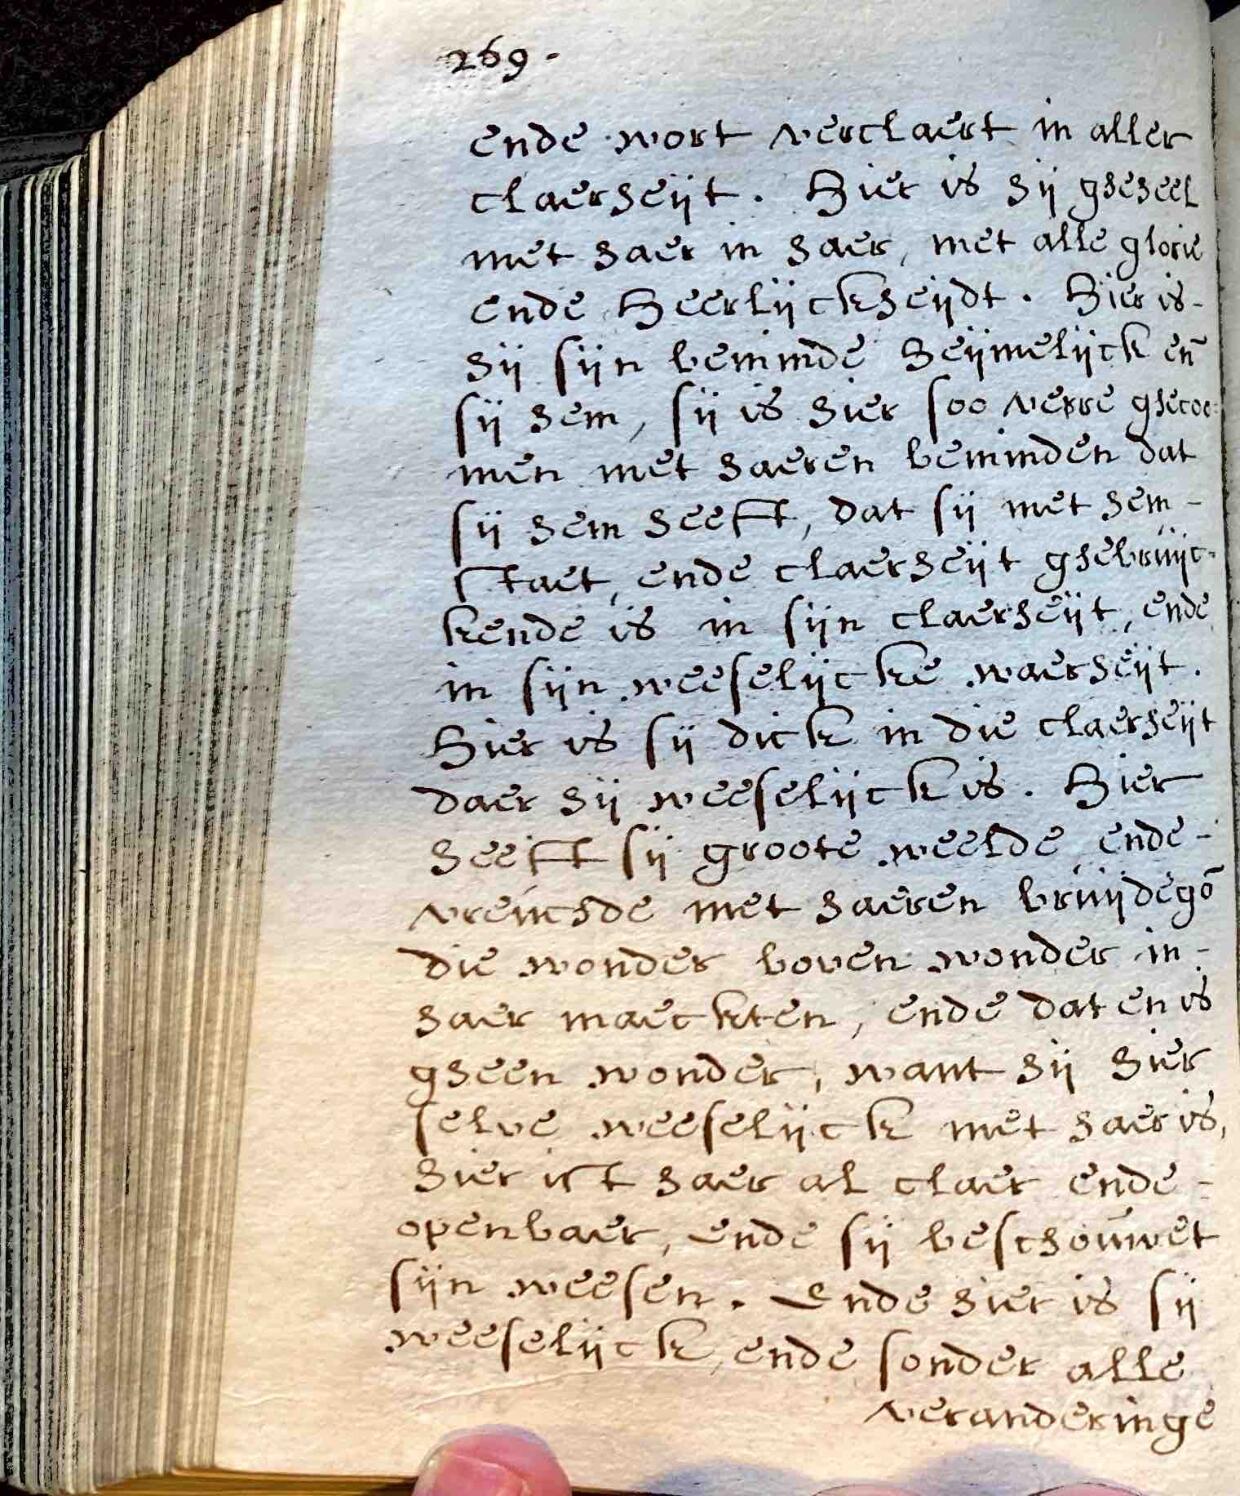 269.
ende wort verclaert in aller
claerheijt. Hier is hij gheheel
met haer in haer, met alle glorie
ende Heerlijckheijdt. Hier is-
hij sijn beminde heijmelijck en̄
sij hem, sij is hier soo verre ghecoe=
men met haeren beminden dat
sij hem heeft, dat sij met hem-
staet, ende claerheijt ghebruijc-
kende is in sijn claerheijt, ende
in sijn weeselijcke waerheijt.
Hier is sij dick in die claerheijt
daer hij weeselijck is. Hier
heeft sij groote weelde ende-
vreuchde met haeren bruijdegō
die wonder boven wonder in-
haer maeckten, ende dat en is
gheen wonder, want hij hier
selve weeselijck met haer is,
hier ist haer al claer ende-
openbaer, ende sij beschouwet
sijn weesen. Ende hier is sij
weeselijck, ende sonder alle
veranderinge